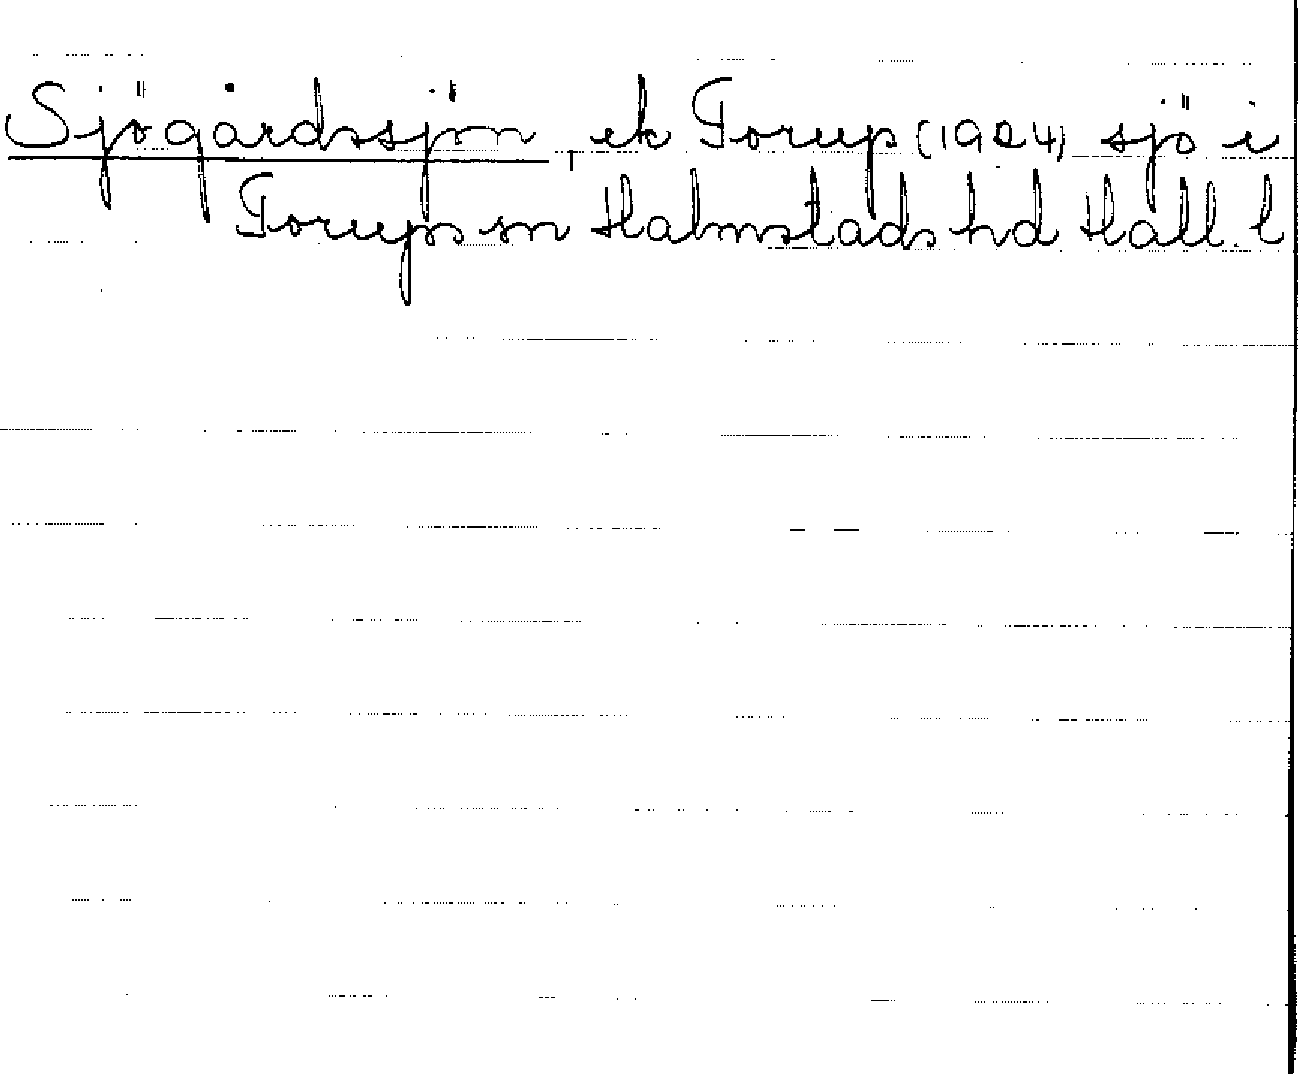 Sjögårdssjön, ek Torup (1924) sjö i
Torups sn Halmstads hd Hall. l